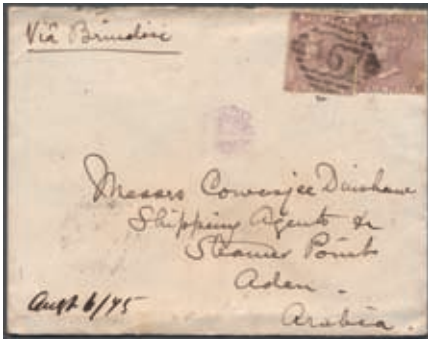 Via Brindisi
Messrs Cowasjee Dinshaw
Shipping Agents &c
Steamer Point
Aden.
Arabia.
Augt 6/75